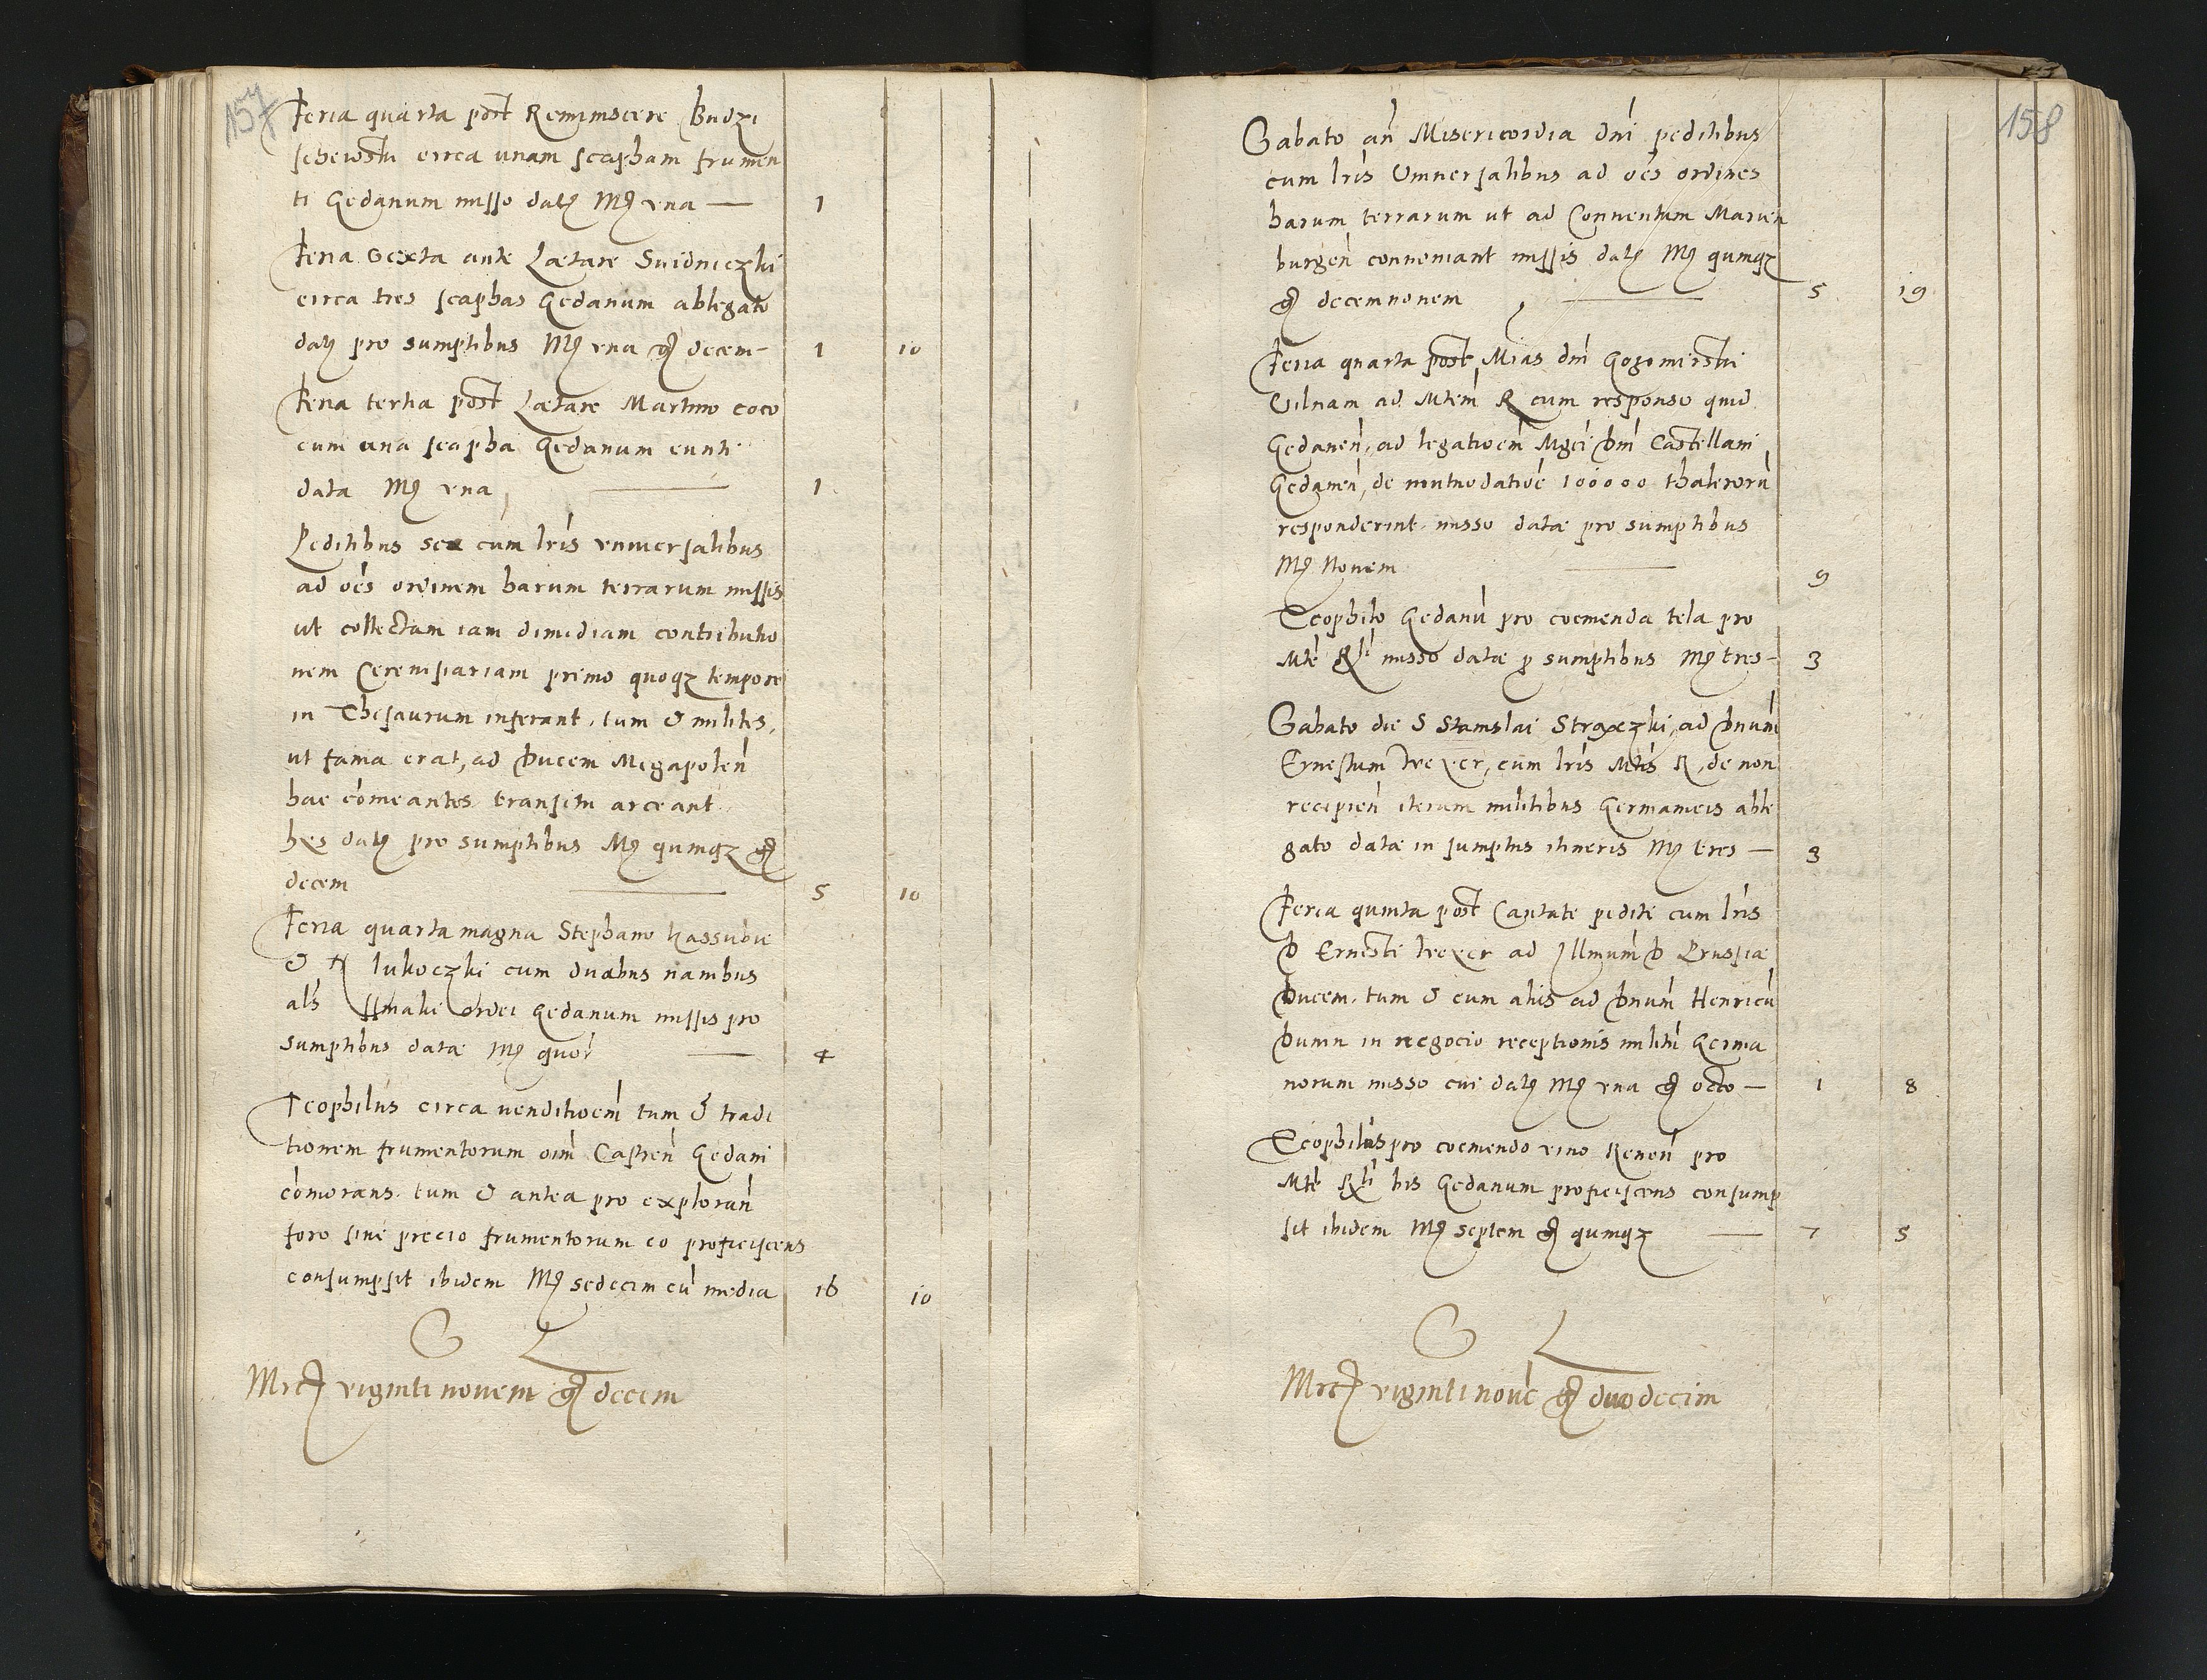 157
Feria quarta post Reminiscere Budzi
schewski circa unam scapham frumen
ti Gedanum misso datę Mę vna — 1
Feria Sexta ante Lætare Suidniczki
circa tres scaphas Gedanum ablegato
datę pro sumptibus Mę vna gę decem – 1 10
Feria tertia post Lætare Martino coco
cum una scapha Gedanum eunti
data Mę vna, — 1
Peditibus sex cum lris vniuersalibus
ad oēs ordinem harum terrarum missis
ut collectam iam dimidiam contributio
nem Cereuisiariam primo quoqz tempore
in Thesaurum inferant, tum & milites,
ut fama erat, ad Ducem Megapoleñ
hac com̄eantes transitu arceant
hęs datę pro sumptibus Mę quinqz gę
decem — 5 10
Feria quarta magna Stephano Kassubie
& lukoczki cum duabus nauibus
als Smaki ordei Gedanum missis pro
sumptibus datæ Mę quor — 4
Teophilus circa venditioem̄ tum & tradi
tionem frumentorum oim̄ Castreñ Gedani
com̄orans, tum & antea pro exploran̄
foro siue precio frumentorum eo proficiscens
consumpsit ibidem Mę sedecim cū media 16 10
S L
Mrcę viginti novem gę decem
158
Sabato an̄ Misericordia dnī peditibus
cum lris Vniuersalibus ad oēs ordines
harum terrarum ut ad Conuentum Marien
burgeñ conueniant missis datę Mę quinqz
gę decemnonem — 5 19
Feria quarta post Mias dnī Gogomirski
Vilnam ad Mtem R cum responso quid
Gedaneñ, ad legatioem̄ Mgci Dnī Castellani
Gedaneñ, de mutuodatioē 100000 thalerorū
responderint misso datæ pro sumptibus
Mę Nouem — 9
Teophilo Gedanū pro coemenda tela pro
Mte Rli misso datæ p sumptibus Mę tres – 3
Sabato die S Stanislai Straczki, ad Dnum̄
Ernestum Weyer, cum lris Mtis R, de non
recipien̄ iterum militibus Germanicis able
gato datæ in sumptus itineris Mę tres — 3
Feria quinta post Cantate pedite cum lris
D Ernesti Weyer ad Illmum̄ D Prussiæ
Ducem, tum & cum aliis ad Dnum̄ Henricū
Dunin in negocio receptionis militū Germa
norum misso cui datę Mę vna gę octo — 1 8
Teophilus pro coemendo vino Reneñ pro
Mte Rli bis Gedanum proficiscens consump
sit ibidem Mę septem gę quinqz — 7 5
S L
Mrcę viginti nouē gę duodecim